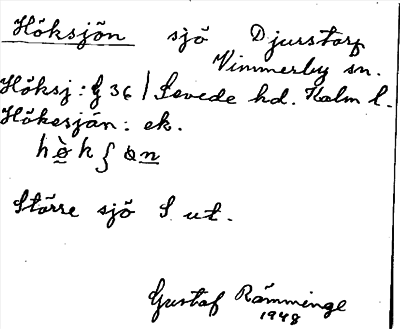 Höksjön sjö Djurstorp
Vimmerby sn.
Höksj: G 36 | Sevede hd. Kalm l.
Hökesjön: ek.
Större sjö S ut.
Gustaf Rämminge
1948